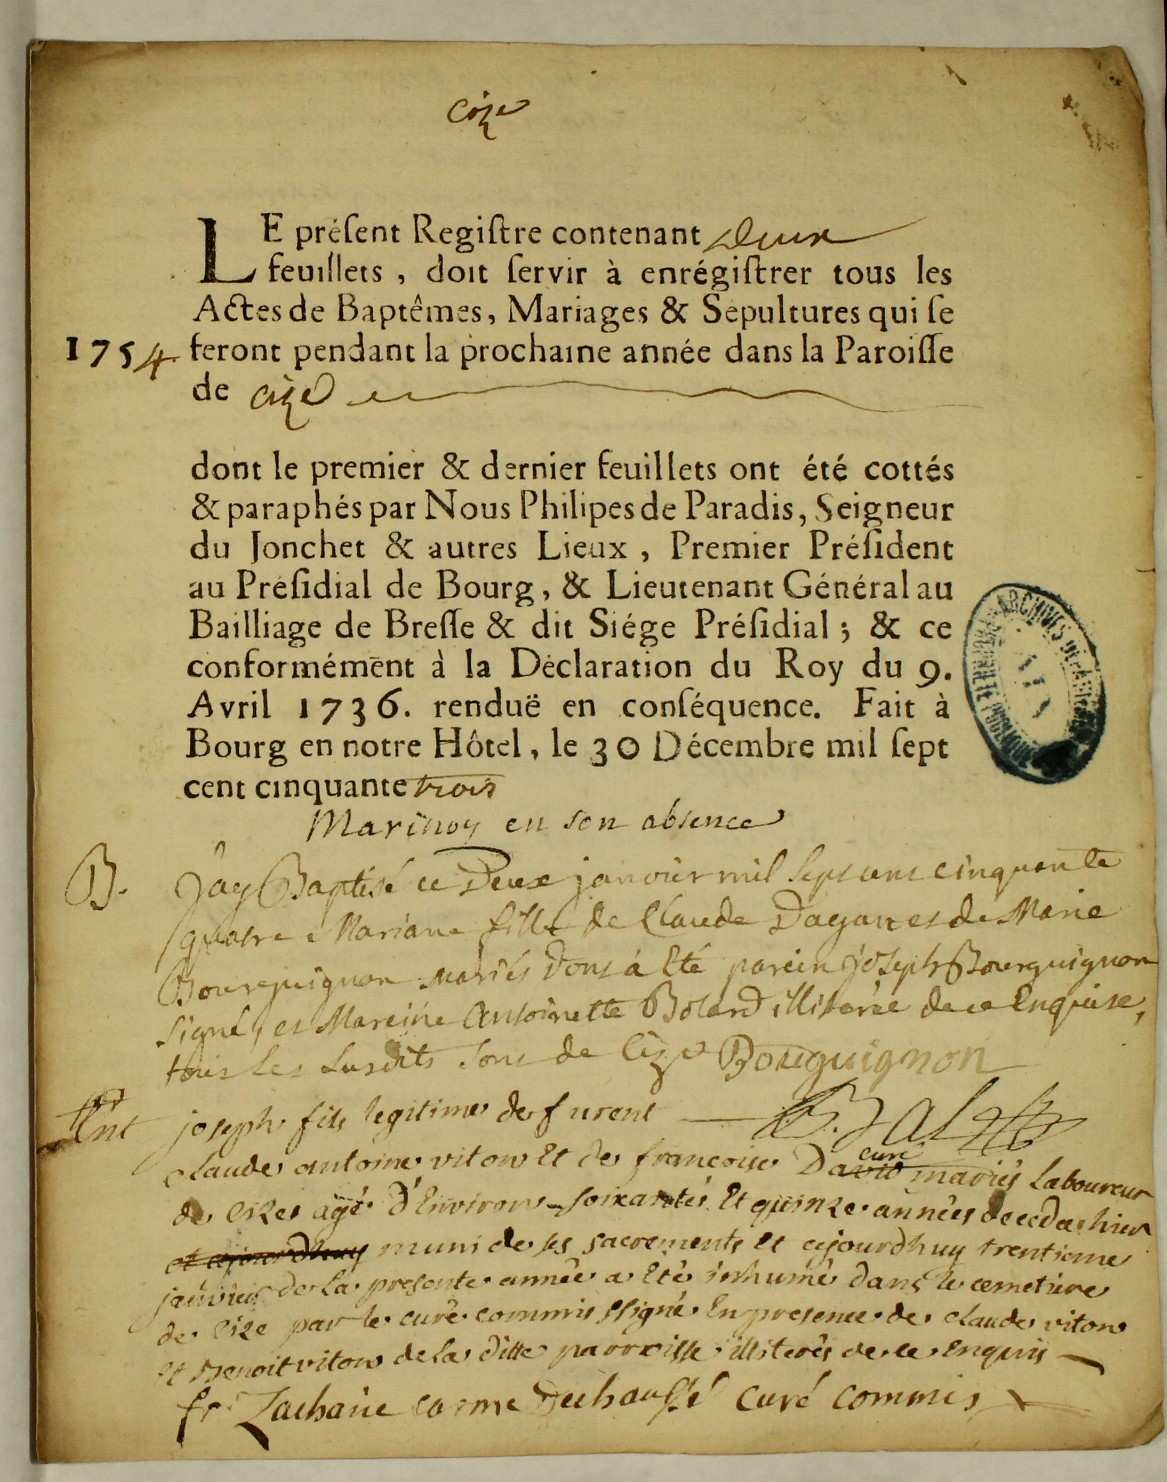 Cize
LE préſent Regiſtre contenant Deux
feuillets, doit ſervir à enrégiſtrer tous les
Actes de Baptêmes, Mariages & Sepultures qui ſe
1754 feront pendant la prochaine année dans la Paroiſſe
de Cize
dont le premier & dernier feuillets ont été cottés
& paraphés par Nous Philipes de Paradis, Seigneur
du Jonchet & autres Lieux, Premier Préſident
au Préſidial de Bourg, & Lieutenant Général au
Bailliage de Breſſe & dit Siége Préſidial; & ce
conformément à la Déclaration du Roy du 9.
Avril 1736. renduë en conſéquence. Fait à
Bourg en notre Hôtel, le 30 Décembre mil ſept
cent cinquante trois
en son absence
B. J'ay Baptisé ce Deux janvier mil sept cens cinquante
quatre Mariane fille de Claude Dagan et de Marie
Bourguignon mariés dont á Eté parein joseph Bourguignon
signé, et Mareine Antoinette illiterée de ce Enquise,
tous les susdits sont de Cize Bouguignon
Ent joseph fils legitime defurent
claude antoine viton Et de francoise David mariés Laboureur
curé
de cize agé d'Environ soixantes Et quinze années decedé hier
et ajourdhuy muni de ses sacrements et ajourdhuy trentieme
janvier de La presente année a Eté inhumé dans le cemetiere
de cize par le curé commis ssigné En presence de claude viton
et Benoit viton de La ditte parroisse illiterés de ce Enquis
fr Zacharie carme Dechaussé curé commis